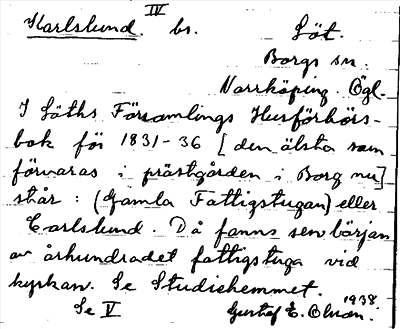 IV
Karlslund. bs. Löt.
Borgs sn.
Norrköping. Ögl.
I Löths Församlings Husförhörs-
bok för 1831-36 [den älsta som
förvaras i prästgården i Borg nu]
står: (Gamla Fattigstugan) eller
Carlslund. Då fanns sen början
av århundradet fattigstuga vid
kyrkan. Se Studiehemmet.
Se V Gustaf E. 1938